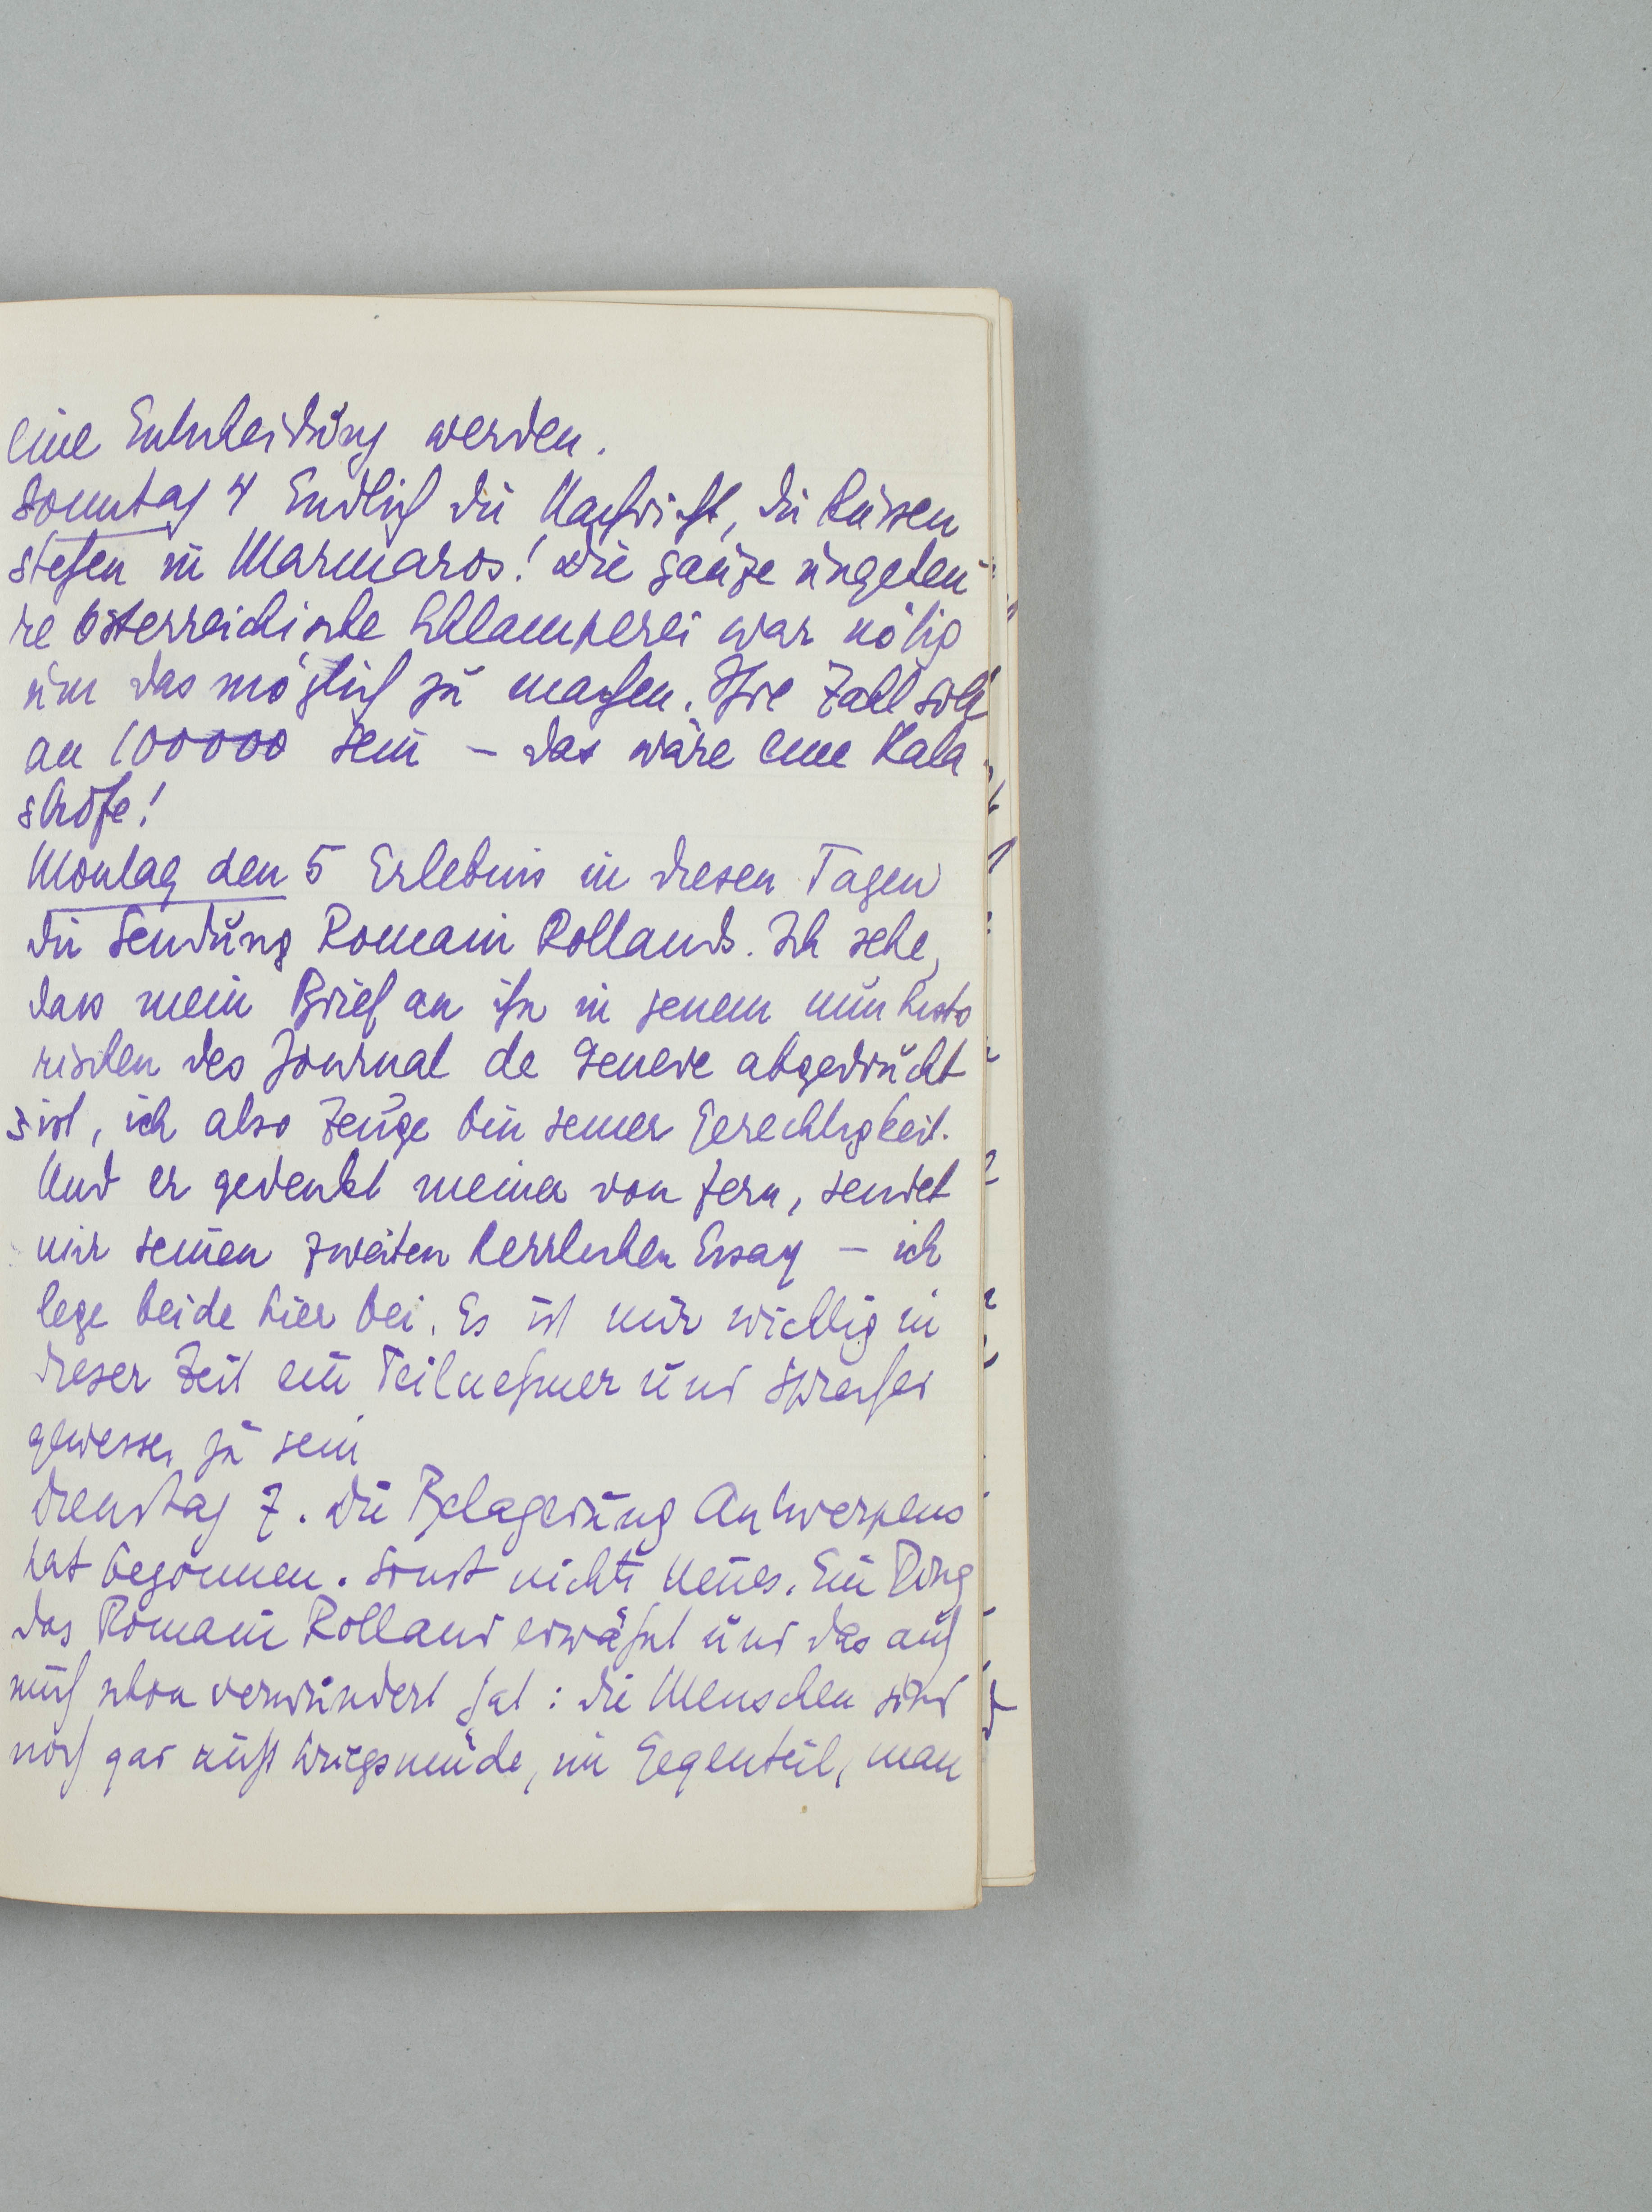 eine Entscheidung werden.
Sonntag 4 Endlich die Nachricht, die Russen
stehen in Marmaros! Die ganze ungeheu
re österreichische Schlamperei war nötig
um das möglich zu machen. Ihre Zahl soll
an 100000 sein – das wäre eine Kata
strofe!
Montag den 5 Erlebnis in diesen Tagen
die Sendung Romain Rollands. Ich sehe,
dass mein Brief an ihn in jenem nun histo
rischen des Journal de Geneve abgedruckt
ist, ich also Zeuge bin seiner Gerechtigkeit.
Und er gedenkt meiner von fern, sendet
mir seinen zweiten herrlichen Essay – ich
lege beide hier bei. Es ist mir wichtig in
dieser Zeit ein Teilnehmer und Sprecher
gewesen zu sein
Dienstag 7. Die Belagerung Antwerpens
hat begonnen. Sonst nichts Neues. Ein Ding
das Romain Rolland erwähnt und das auch
mich schon verwundert hat: die Menschen sind
noch gar nicht kriegsmüde, im Gegenteil, man